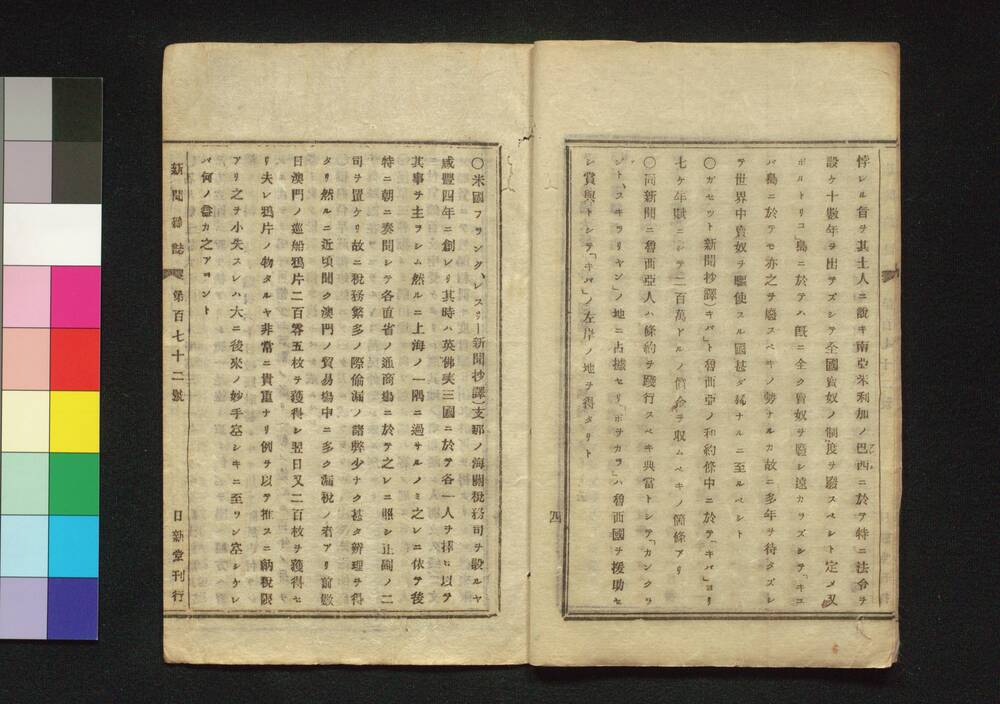 悖レル旨ヲ其土人ニ説キ南亞米利加ノ巴西ニ於テ特ニ法令ヲ
設ケ十數年ヲ出デズシテ全國賣奴ノ制度ヲ廢スベシト定メ又
ポルトリコ島ニ於テハ既ニ全ク賣奴ヲ廢シ遠カラズシテ「キユ
バ島ニ於テモ亦之ヲ廢スベキノ勢ナルカ故ニ多年ヲ待タズシ
ヲ世界中賣奴ヲ驅使スル國甚ダ稀ナルニ至ルベシト
〇ガセット新聞抄譯)キバト魯西亞ノ和約條中ニ於テ「キバ」ヨリ
七ケ年賦ニシテ二百萬ドルノ償金ヲ取ムベキノ箇條アリ
〇同新聞ニ魯西亞人ハ條約ヲ踐行スベキ典當トシテ「カンクラ
ント、スキヲリヤン」ノ地ニ占據セリ「ボサカラ」ハ魯西國ヲ援助セ
シ賞與トシテ「キバ」ノ左岸ノ地ヲ得タリト
四
〇米國フランク、レスリー新聞抄譯)支那ノ海關税務司ヲ設ルヤ
咸豐四年ニ創レリ其時ハ英佛米三國ニ於テ各一人ヲ擇ヒ以テ
其事ヲ主ラシム然ルニ上海ノ一隅ニ過サルノミ之レニ依テ後
特ニ朝ニ奏聞シテ各直省ノ通商場ニ於テ之レニ照シ正副ノ二
司ヲ置ケリ故ニ税務繁多ノ際偷漏ノ諸弊少ナク甚タ辨理ヲ得
タリ然ルニ近頃聞ク澳門ノ貿易場中ニ多ク漏税ノ者アリ前數
日澳門ノ巡船鴉片二百零五枚ヲ獲得シ翌日又二百枚ヲ獲得セ
リ夫レ鴉片ノ物タルヤ非常ニ貴重ナリ例ヲ以テ推スニ納税限
アリ之ヲ小失スレハ大ニ後來ノ妙手塞シキニ至ラン塞シケレ
バ何ノ益カ之アラント
新聞雜誌 第百七十二號 日新堂刊行